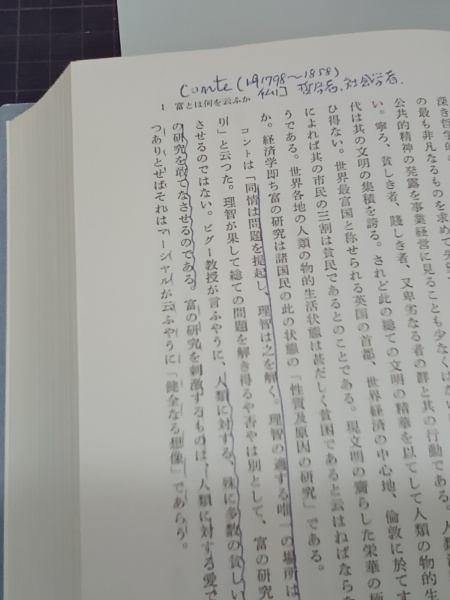 Comte (1798~1858)
[仏] 哲学者、社会学者.
1 富とは何を云ふか
深き哲学的
の最も非凡なるものを求めて
公共的精神の発露を事業経営に見ることも少なくはない
い。寧ろ、貧しき者、賤しき者、又卑劣なる者の群と其の行動である。人類
代は其の文明の集積を誇る。されど此の総ての文明の精華を以てして人類の物的生
ひ得ない。世界最富国と称せられる英国の首都、世界経済の中心地、倫敦に於てす
によれば其の市民の三割は貧民であるとのことである。現文明の齎らした栄華の極
うである。世界各地の人類の物的生活状態は甚だしく貧困であると云はねばならな
か。経済学即ち富の研究は諸国民の此の状態の「性質及原因の研究」である。
コントは「同情は問題を提起し、理智は之を解く。理智の適する唯一の場所は
り」と云つた。理智が果して総ての問題を解き得るや否やは別として、富の研究
させるのではない。ピグー教授が言ふやうに、人類に対する、殊に多数の貧しい
の研究を敢てなさせるのである。富の研究を刺激するものは、人類に対する愛で
つありとせばそれはマーシャルが云ふやうに「健全なる想像」であらう。